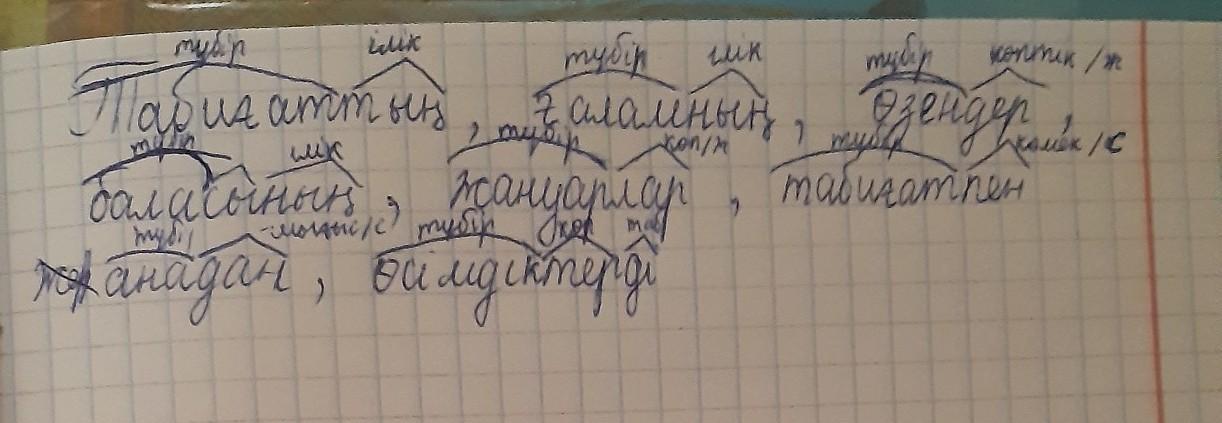 түбір ілік түбір ілік түбір көптік / ж
Табиғаттың , ғаламның , өзендер ,
түбір ілік түбір көп/ж түбір көмек / с
баласының , жануарлар , табиғатпен
түбі шығыс/с түбір көп таб
анадан , өсімдіктерді